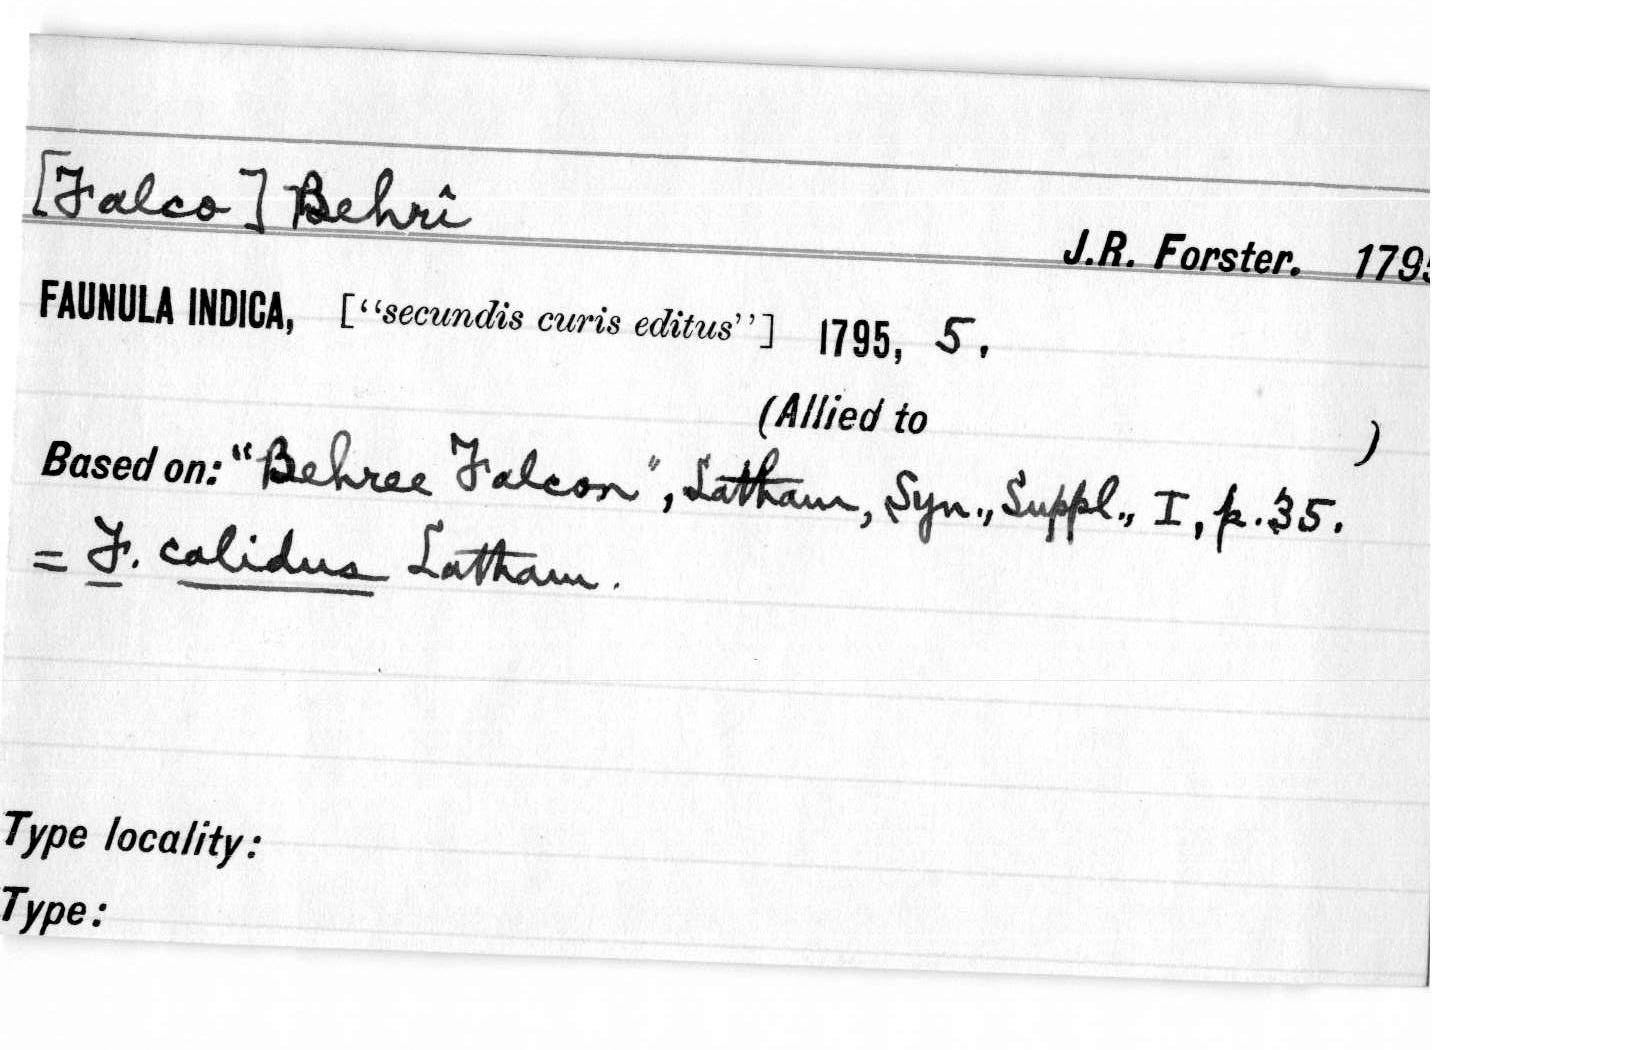 [Falco] Behrî
J.R. Forster. 1795
FAUNULA INDICA, [“secundis curis editus”] 1795, 5.
(Allied to )
Based on: “Behree Falcon”, Latham, Syn., Suppl., I, p. 35.
= F. calidus Latham.
Type locality:
Type: